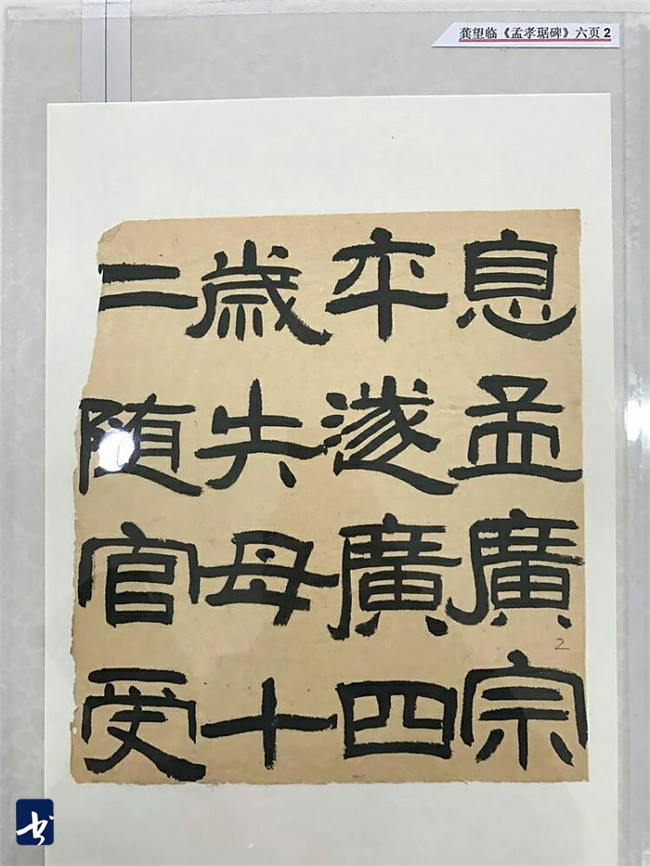 龚望临《孟孝琚碑》六页2
息孟廣宗
卒遂廣四
歲失母十
二随官受
2